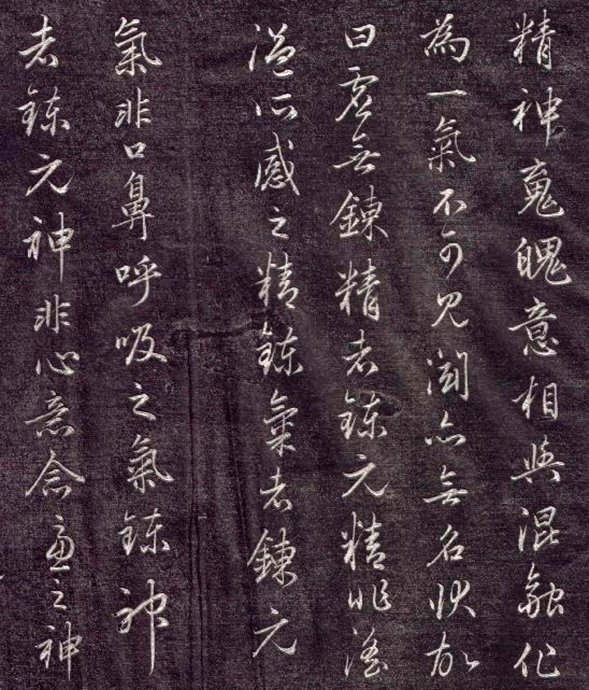 精神䰟魄意相與混融化
為一氣不可見聞亦無名狀故
曰虛無鍊精者鍊元精非淫
泆所感之精鍊氣者鍊元
氣非口鼻呼吸之氣鍊神
者鍊元神非心意念慮之神